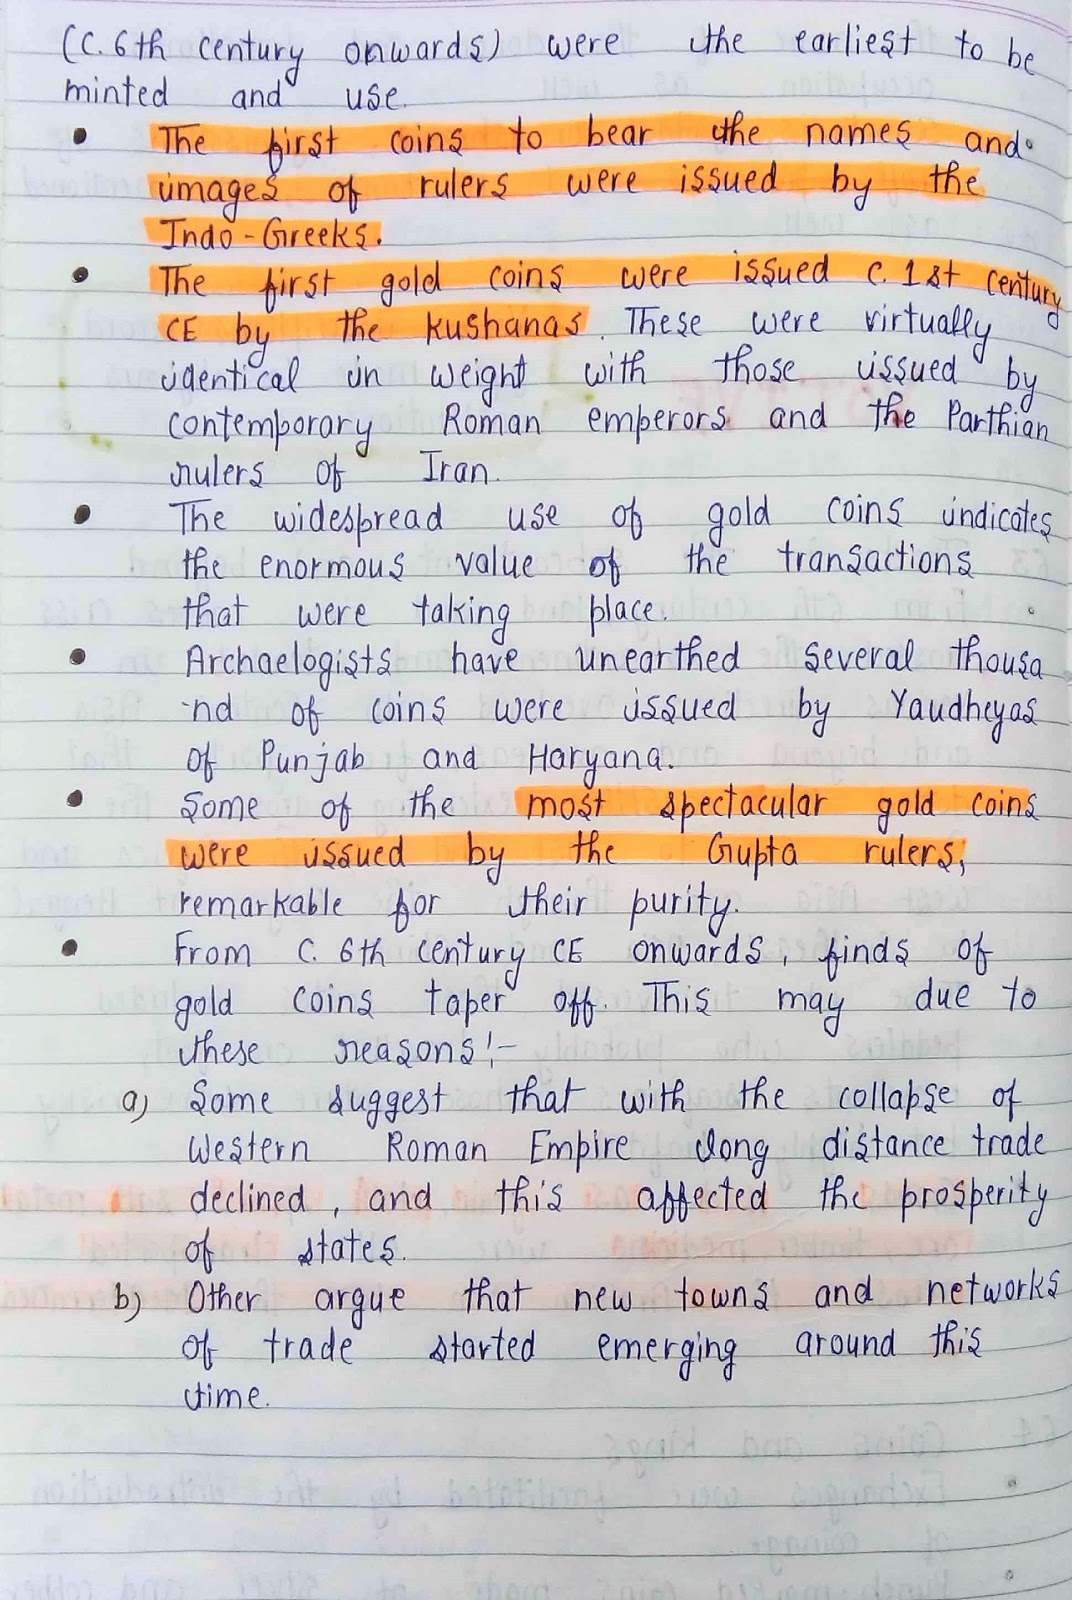 (C. 6th century onwards) were the earliest to be
minted and use.
• The first coins to bear the names and
images of rulers were issued by the
Indo-Greeks.
• The first gold coins were issued c. 1st century
CE by the kushanas. These were virtually
identical in weight with those issued by
contemporary Roman emperors and the Parthian
rulers of Iran.
• The widespread use of gold coins indicates
the enormous value of the transactions
that were taking place.
• Archaelogists have unearthed several thousa
-nd of coins were issued by Yaudheyas
of Punjab and Haryana.
• Some of the most spectacular gold coins
were issued by the Gupta rulers,
remarkable for their purity.
• From C. 6th century CE onwards, finds of
gold coins taper off. This may due to
these reasons:-
a) Some suggest that with the collapse of
Western Roman Empire long distance trade
declined, and this affected the prosperity
of states.
b) Other argue that new towns and networks
of trade started emerging around this
time.